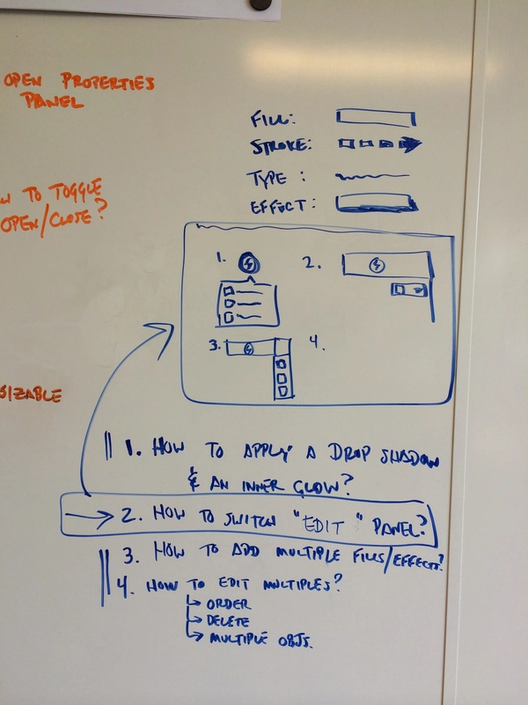 OPEN PROPERTIES
PANEL
TO TOGGLE
OPEN/CLOSE?
FILL:
STROKE:
TYPE:
EFFECT:
1.
2.
3.
4.
1. HOW TO APPLY A DROP SHADOW
& AN INNER GLOW?
2. HOW TO SWITCH "EDIT" PANEL?
3. HOW TO ADD MULTIPLE FILLS/EFFECTS?
4. HOW TO EDIT MULTIPLES?
ORDER
DELETE
MULTIPLE OBJS.